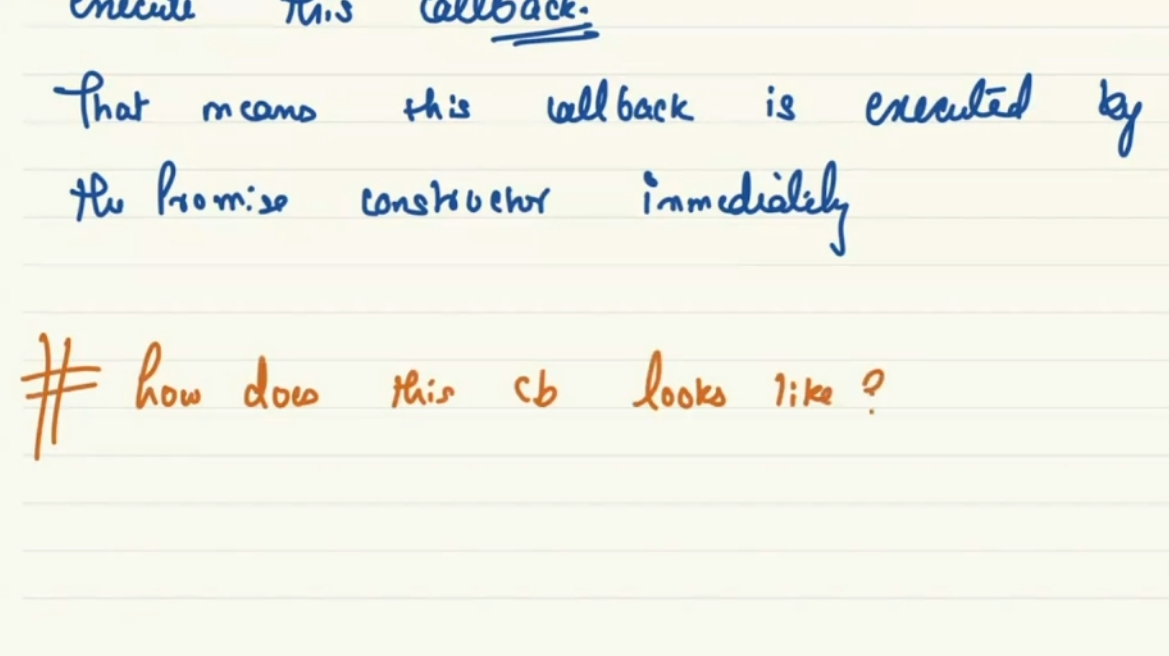 execute this callback.
That means this callback is executed by
the Promise constructor immediately
# how does this cb looks like ?